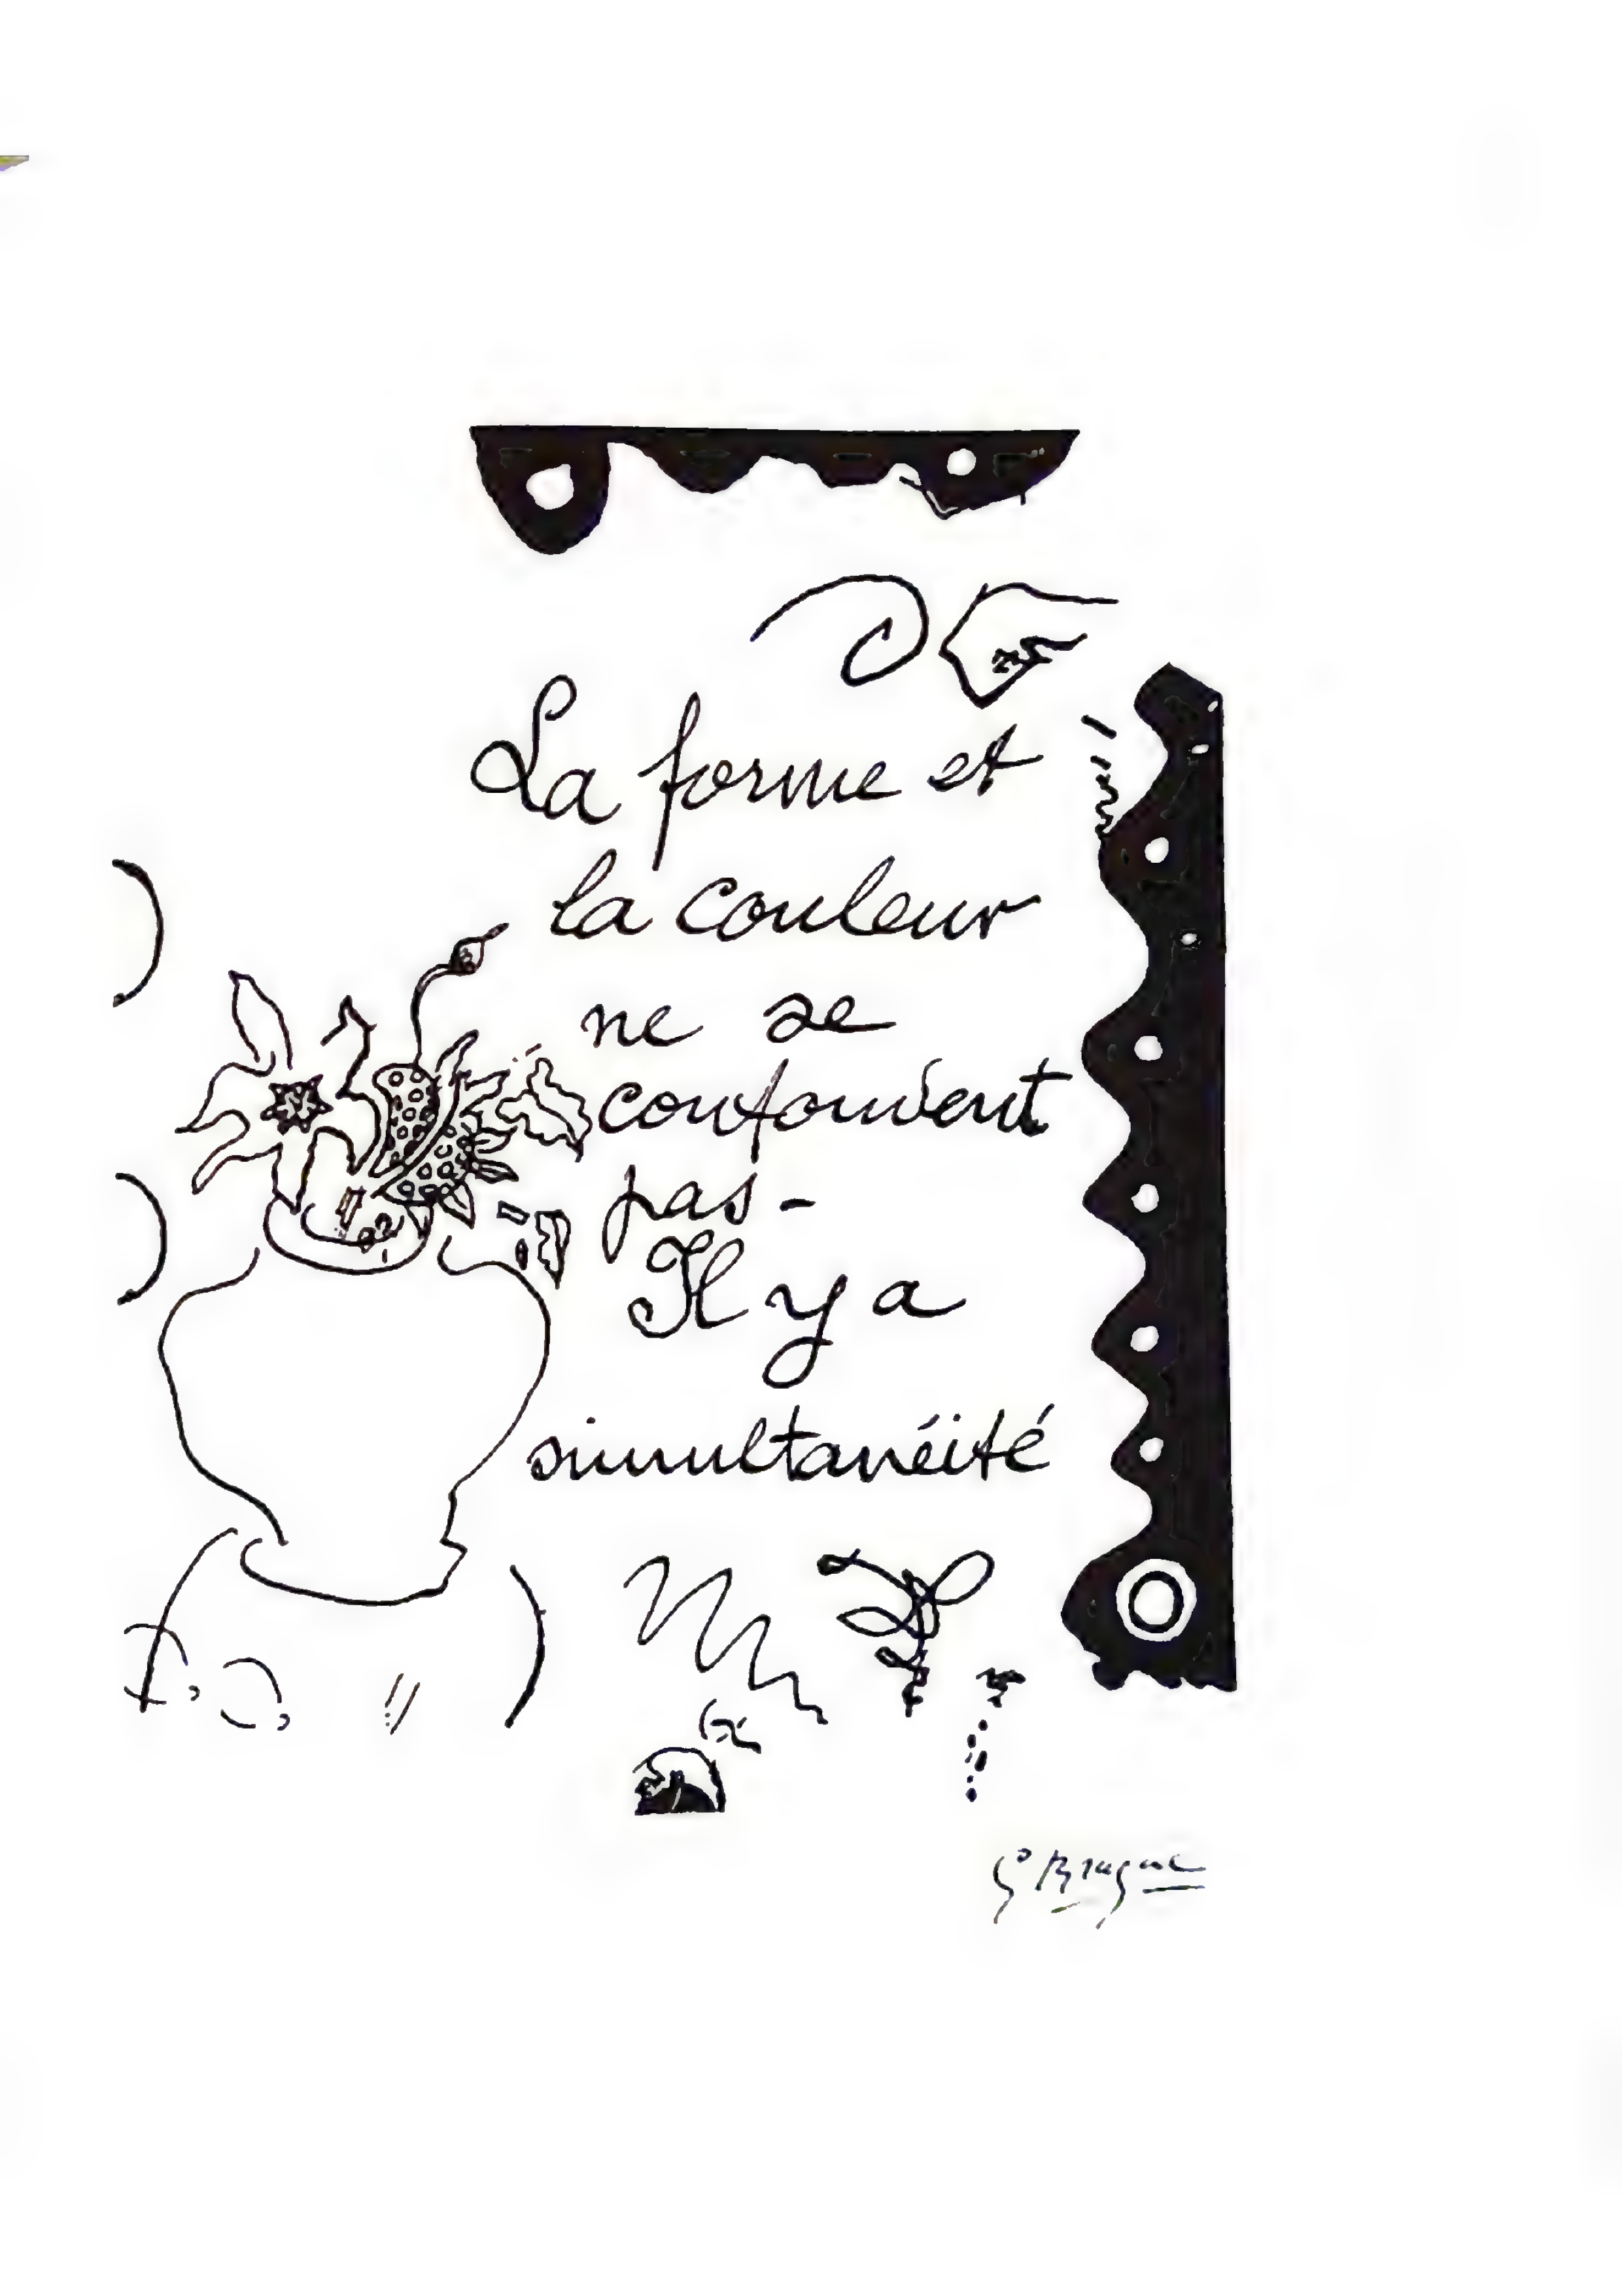 La forme et
la couleur
ne se
confondent
pas -
Il y a
simultanéité
G Braque